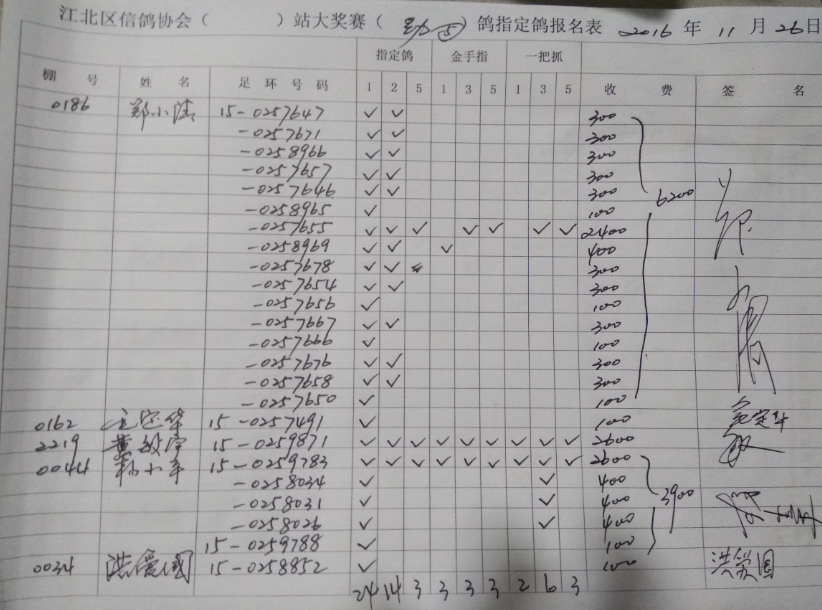 江北区信鸽协会（ ）站大奖赛（ ）鸽指定鸽报名表 2016 年 11 月 26 日
指定鸽 金手指 一把抓
棚号 姓名 足环号码 1 2 5 1 3 5 1 3 5 收费 签名
0186 郑小清 15-0257647 ✓ ✓ 300
-0257671 ✓ ✓ 300
-0258966 ✓ ✓ 300
-0257657 ✓ ✓ 300
-0257646 ✓ ✓ 300 6200
-0258965 ✓ 100
-0257655 ✓ ✓ ✓ ✓ ✓ ✓ ✓ 2400
-0258969 ✓ ✓ ✓ 400
-0257678 ✓ ✓ 300
-0257654 ✓ ✓ 300
-0257656 ✓ 100
-0257667 ✓ ✓ 300
-0257666 ✓ 100
-0257676 ✓ ✓ 300
-0257658 ✓ ✓ 300
-0257650 ✓ 100
0162 15-0257491 ✓ 100
2219 黄敏宇 15-0259871 ✓ ✓ ✓ ✓ ✓ ✓ ✓ ✓ ✓ 2600
0044 小年 15-0259783 ✓ ✓ ✓ ✓ ✓ ✓ ✓ ✓ ✓ 2600
-0258034 ✓ ✓ 400
-0258031 ✓ ✓ 400 3900
-0258026 ✓ ✓ 400
15-0259788 ✓ 100
0034 洪爱国 15-0258852 ✓ 100 洪爱国
24 14 3 3 3 3 2 6 3